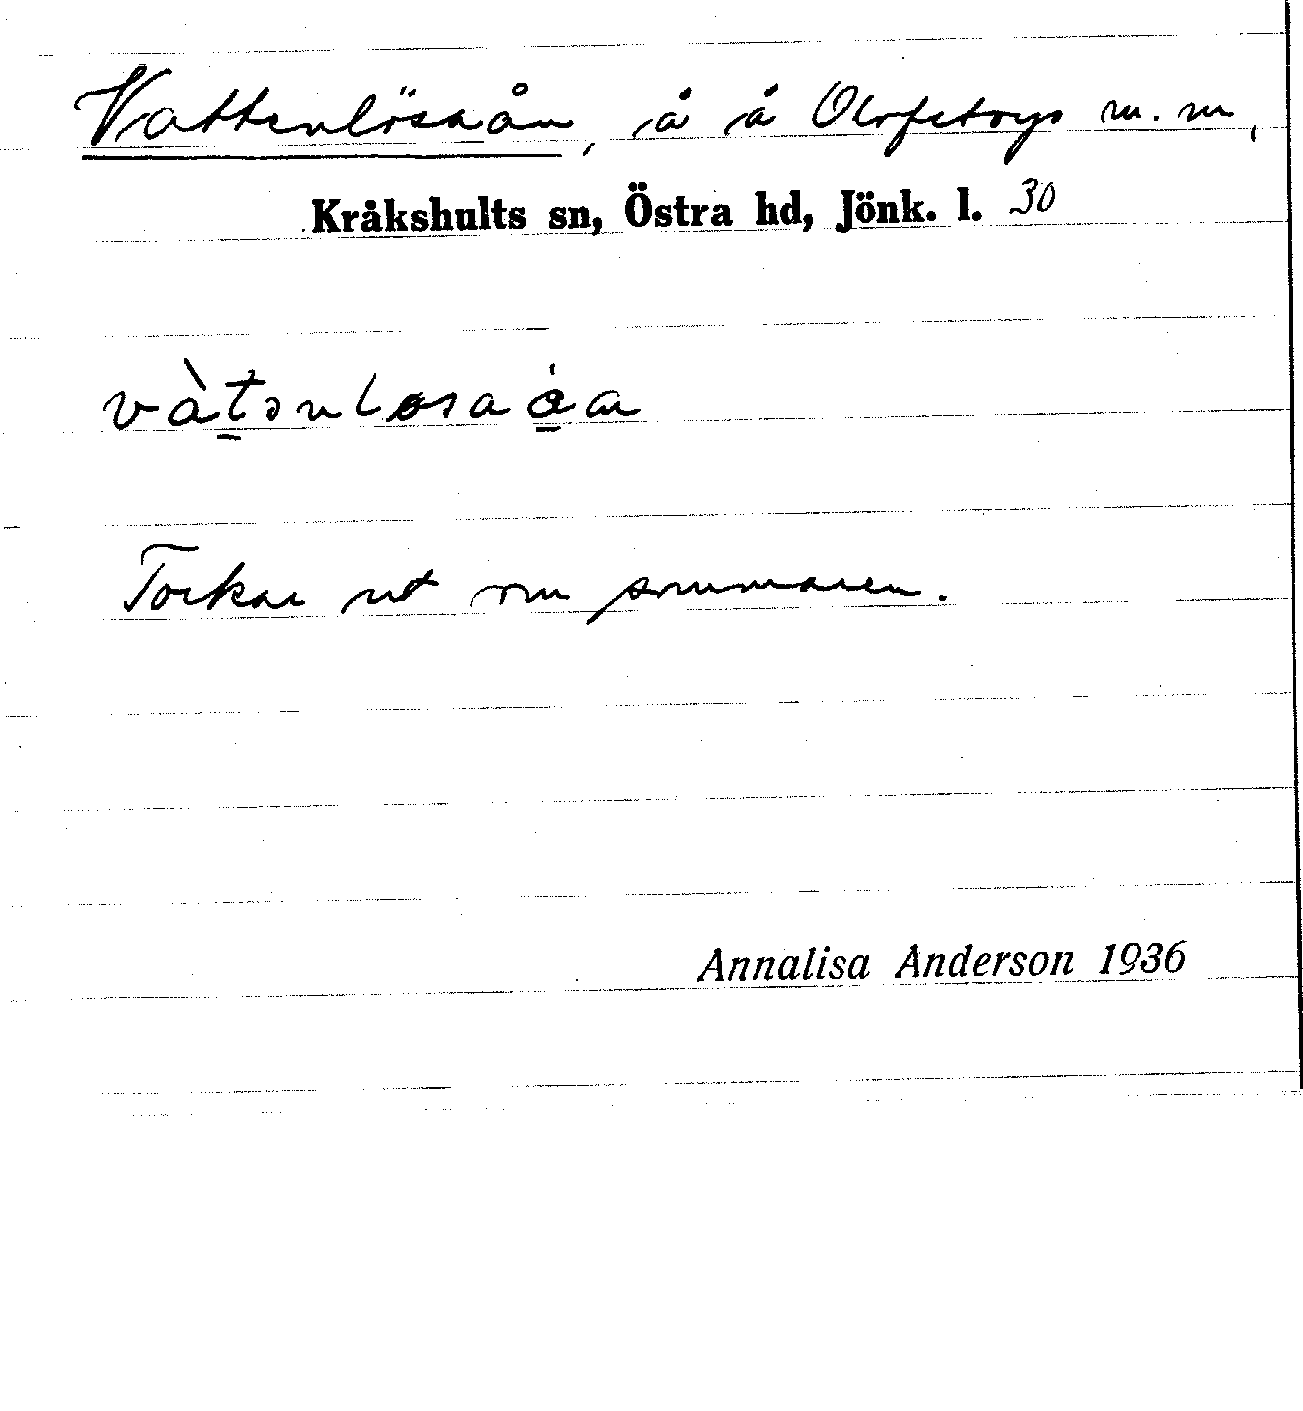 Vattenlösaån, å å Olofstorps m. m,
Kråkshults sn, Östra hd, Jönk. l. 30
vàtənløsaåa
Torkar ut om sommaren.
Annalisa Anderson 1936